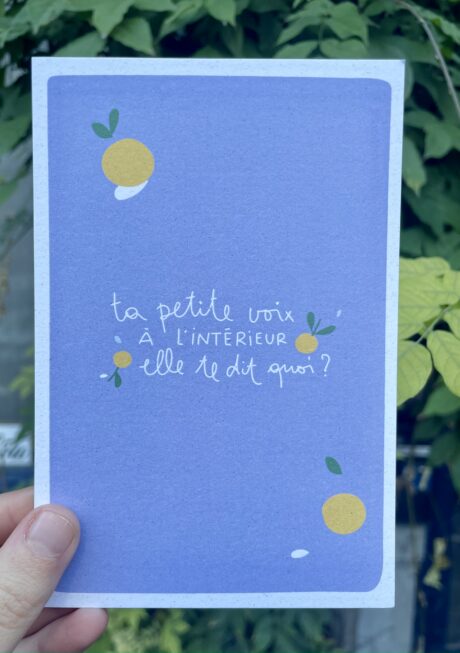 ta petite voix
À L'INTÉRIEUR
elle te dit quoi ?